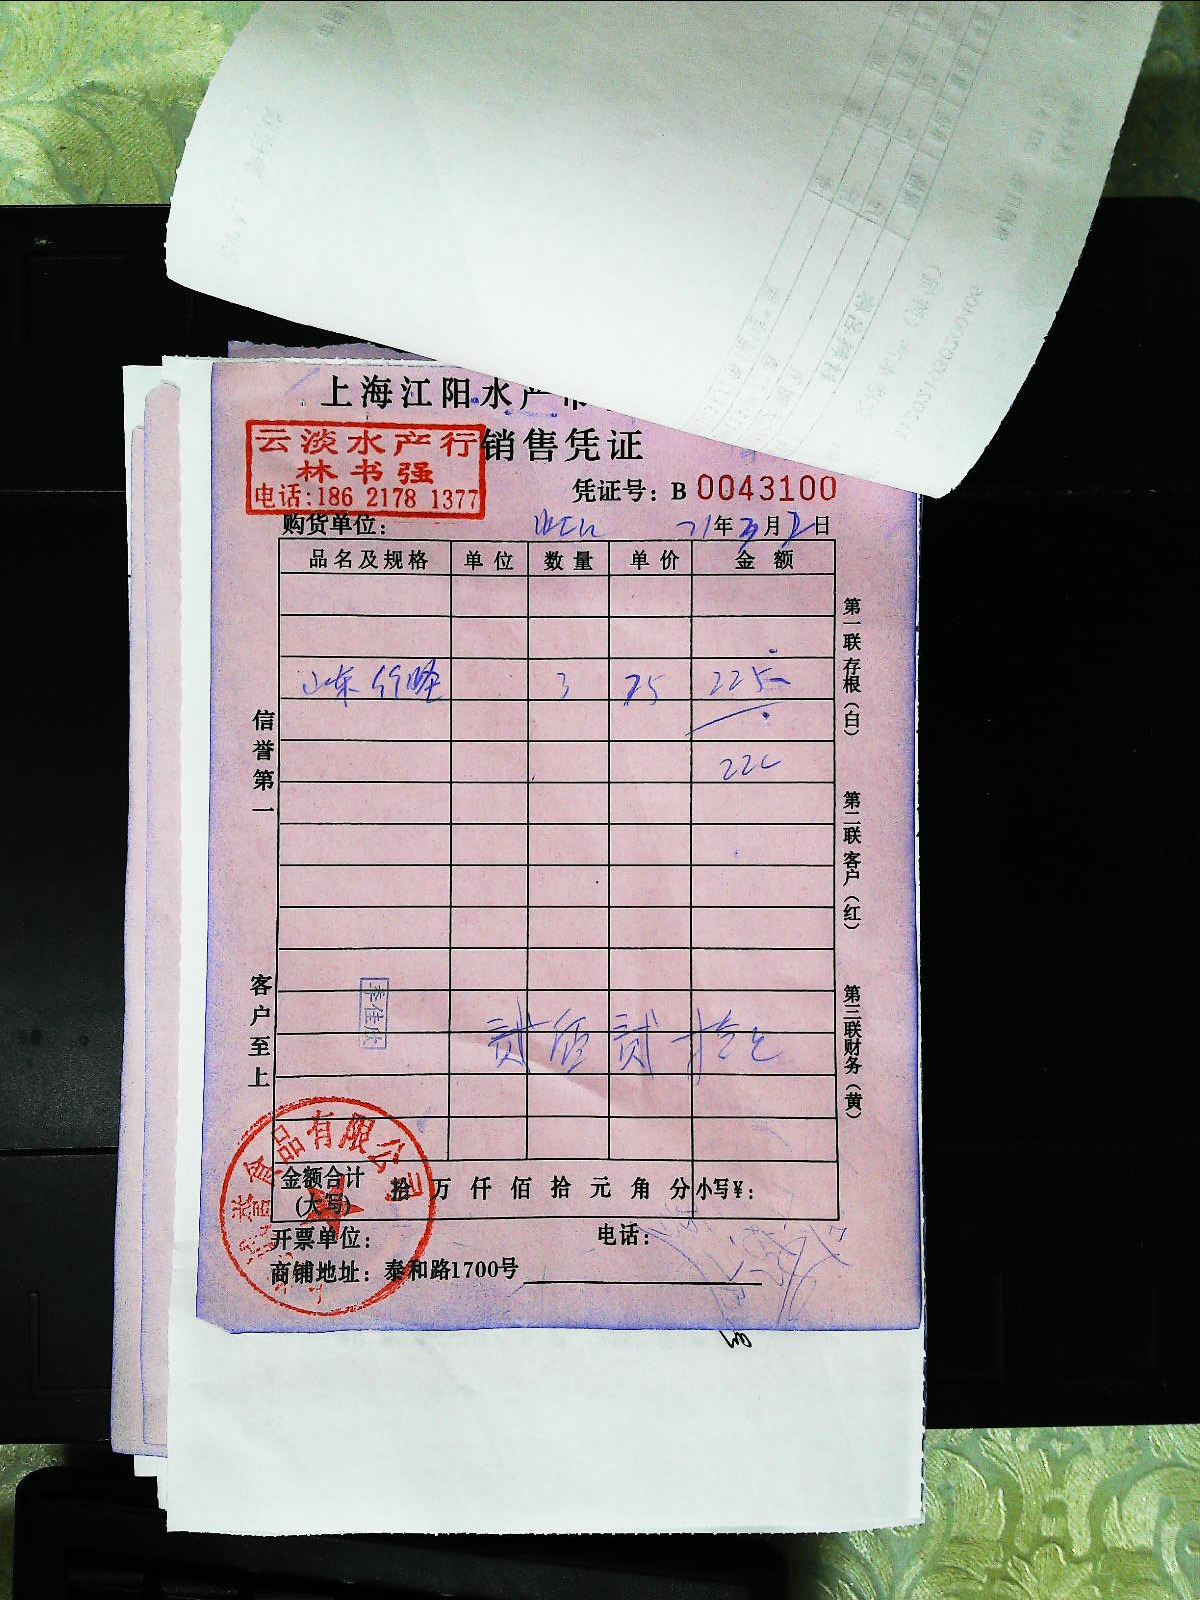 上海江阳水产
云淡水产行
林书强
电话:186 2178 1377
销售凭证
凭证号：B 0043100
购货单位： 21年3月2日
品名及规格 单位 数量 单价 金额
山东竹蛏 3 75 225
22
信誉第一
客户至上
李佳欣
贰佰贰拾
第一联存根（白）
第二联客户（红）
第三联财务（黄）
食品有限公司
金额合计(大写) 拾 万 仟 佰 拾 元 角 分 小写¥：
开票单位： 电话：
商铺地址：泰和路1700号